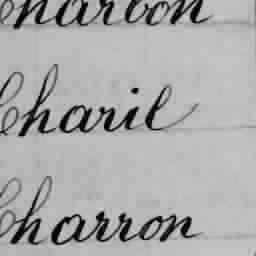 Charbon
Charil
Charron